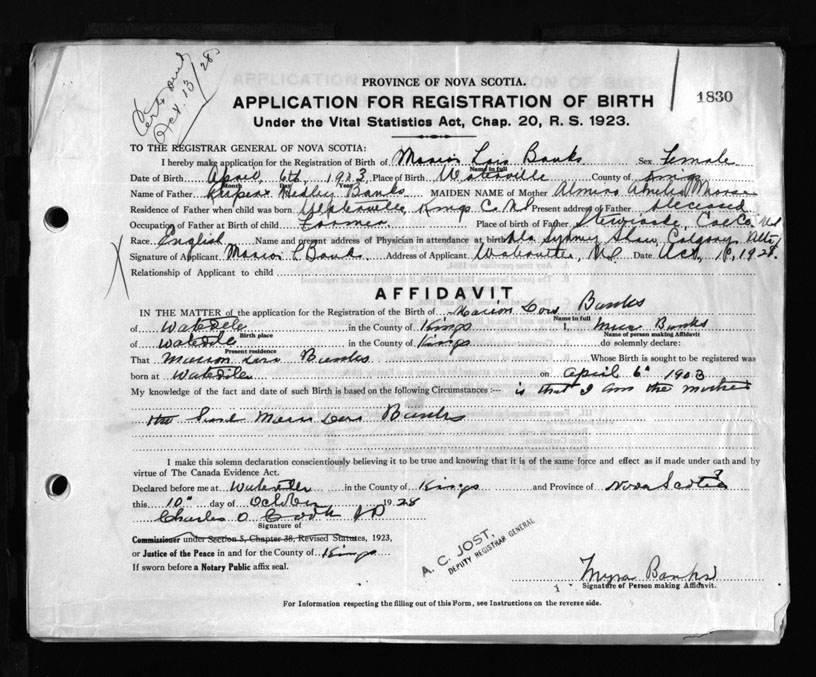 Oct. 13/28
PROVINCE OF NOVA SCOTIA.
APPLICATION FOR REGISTRATION OF BIRTH
1830
Under the Vital Statistics Act, Chap. 20, R. S. 1923.
TO THE REGISTRAR GENERAL OF NOVA SCOTIA:
I hereby make application for the Registration of Birth of Marion Lois Banks Sex Female
Name in full
Date of Birth April 6th 1903 Place of Birth Waterville County of Kings
Month Day Year
Name of Father Medley Banks MAIDEN NAME of Mother Almira
Residence of Father when child was born Kings Co N S Present address of Father deceased
Occupation of Father at Birth of Child Farmer Place of birth of Father
Race English Name and present address of Physician in attendance at birth Sydney Shaw, Calgary, Alta
Signature of Applicant Marion L Banks Address of Applicant N S Date Oct. 1928.
Relationship of Applicant to child
AFFIDAVIT
IN THE MATTER of the application for the Registration of the Birth of Marion Banks
Name in full
of in the County of Kings I, Banks
Birth place Name of person making Affidavit
of in the County of Kings do solemnly declare:
Present residence
That Marion Banks Whose Birth is sought to be registered was
born at on April 6" 1903
My knowledge of the fact and date of such Birth is based on the following Circumstances :— is that I am the mother
the Banks
I make this solemn declaration conscientiously believing it to be true and knowing that it is of the same force and effect as if made under oath and by
virtue of The Canada Evidence Act.
Declared before me at in the County of Kings and Province of Nova Scotia
this 10" day of October 1928
Charles O Cook J P
Signature of
Commissioner under Section 5, Chapter 38, Revised Statutes, 1923,
or Justice of the Peace in and for the County of Kings
If sworn before a Notary Public affix seal.
A. C. JOST,
DEPUTY REGISTRAR GENERAL
Myra Banks
Signature of Person making Affidavit.
For Information respecting the filling out of this Form, see Instructions on the reverse side.